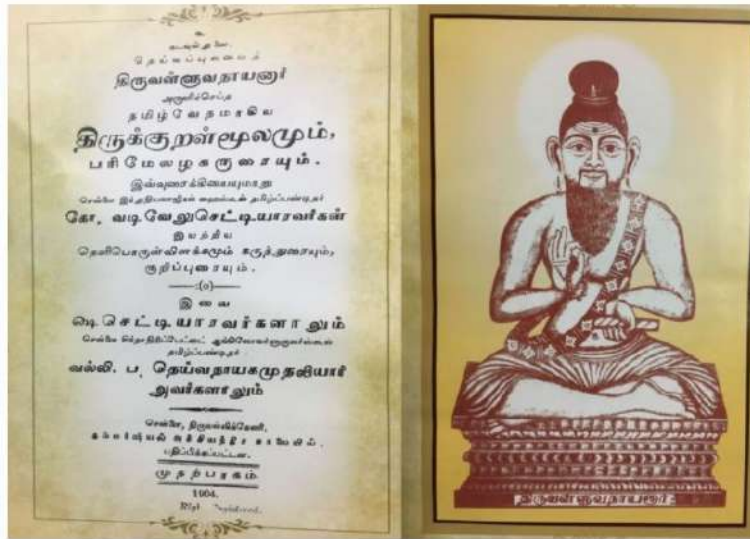 உ
கடவுள் துணை.
தெய்வப்புலமைத்
திருவள்ளுவநாயனார்
அருளிச்செய்த
தமிழ்வேதமாகிய
திருக்குறள்மூலமும்,
பரிமேலழகருரையும்.
இவ்வுரைக்கியையுமாறு
சென்னை தமிழ்ப்பண்டிதர்
கோ, வடிவேலுசெட்டியாரவர்கள்
இயற்றிய
தெளிபொருள்விளக்கமும் கருத்துரையும்,
குறிப்புரையும்.
—:(o)—
இவை
ஷெ செட்டியாரவர்களாலும்
சென்னை சிந்தாதிரிப்பேட்டை
தமிழ்ப்பண்டிதர்
வல்லி. ப. தெய்வநாயகமுதலியார்
அவர்களாலும்
சென்னை, திருவல்லிக்கேணி,
பதிப்பிக்கப்பட்டன.
முதற்பாகம்
1904.
திருவள்ளுவநாயனார்